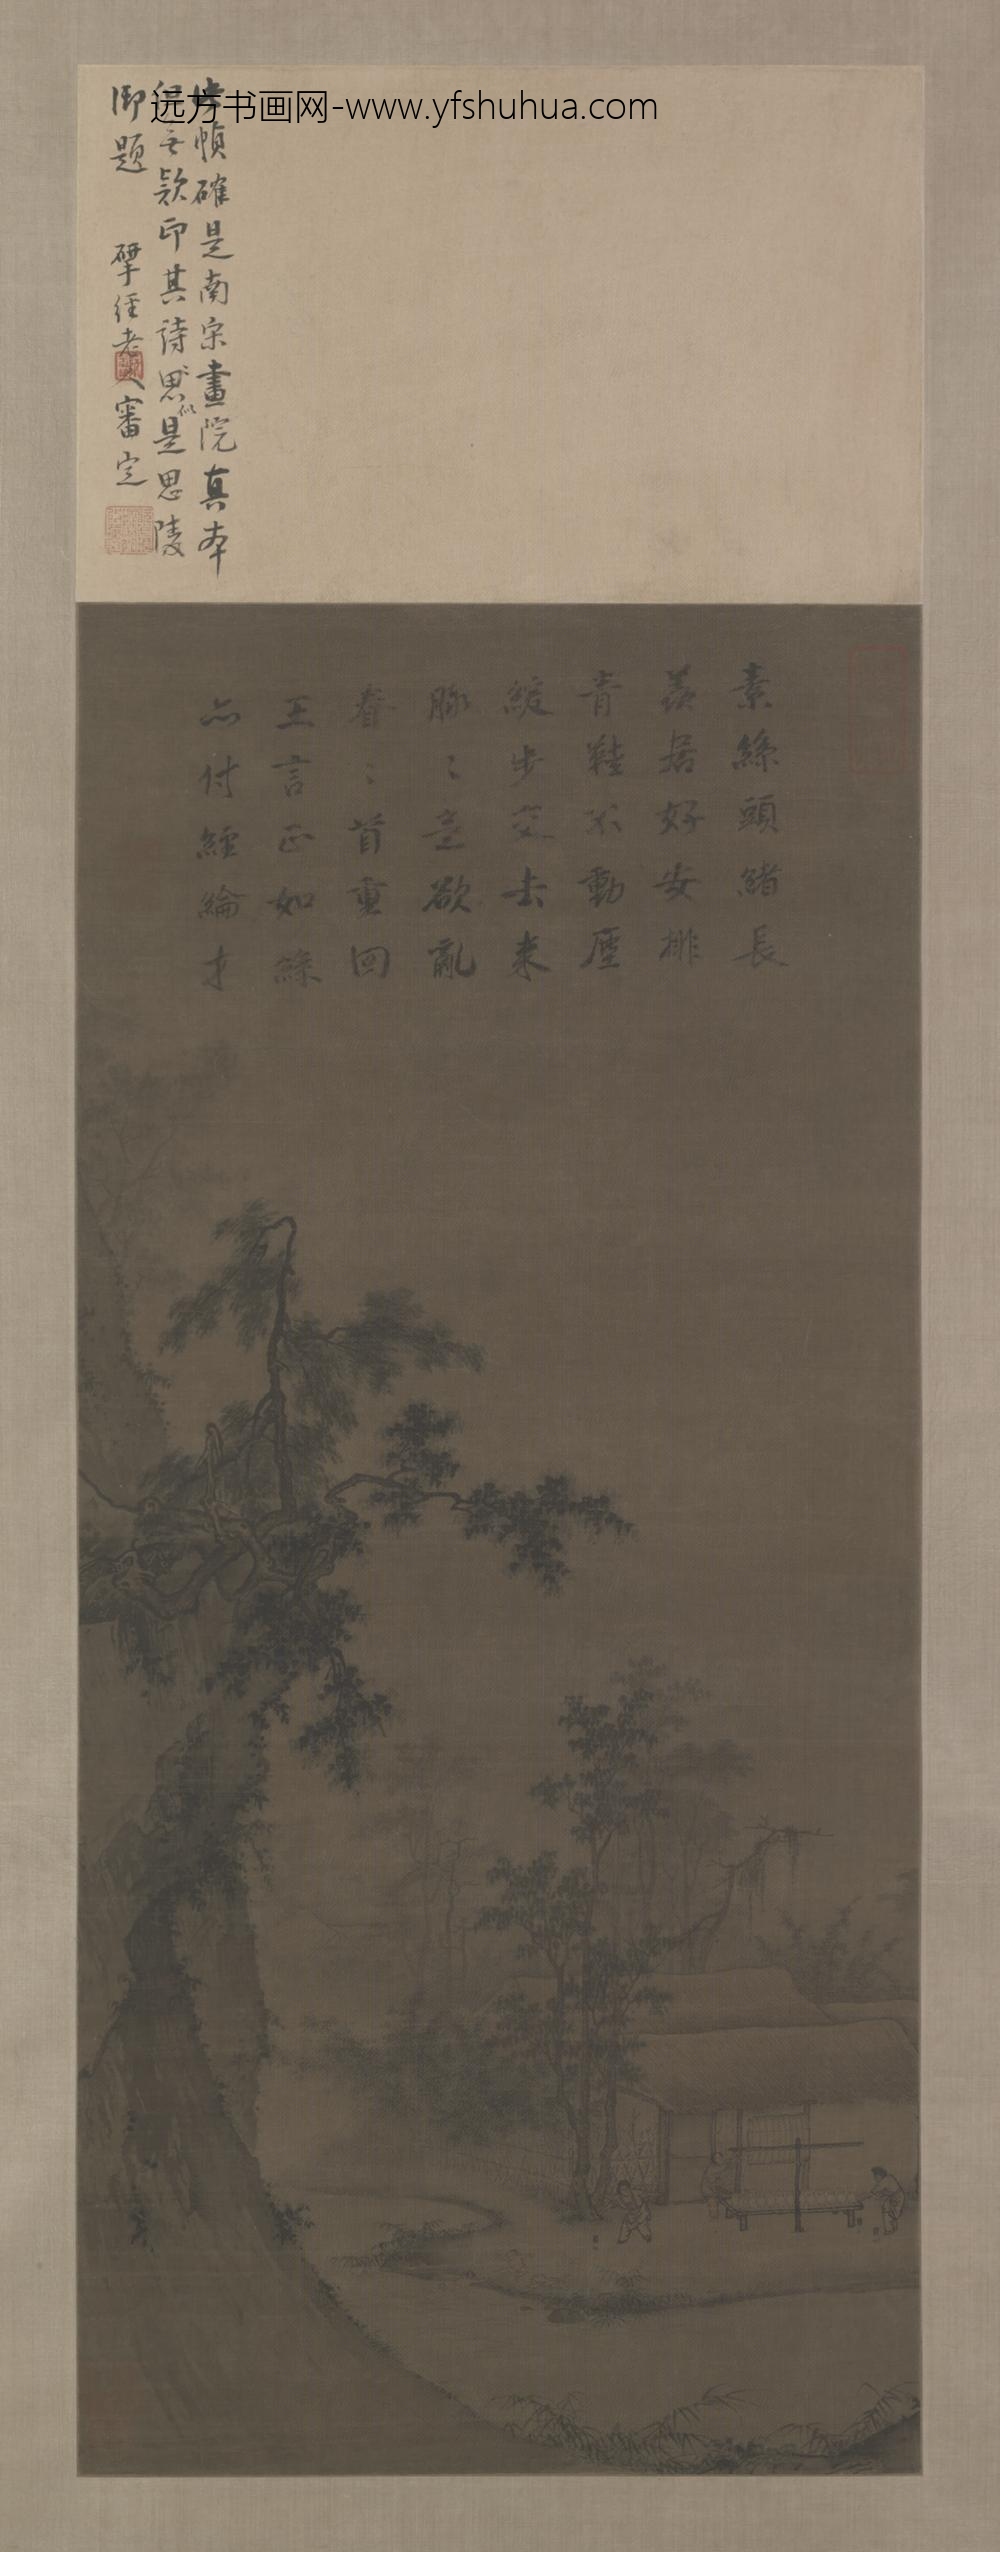 远方书画网-www.yfshuhua.com
幀確是南宋畫院真本
款印其詩思似是思陵
御題
揅經老人審定
素絲頭緒長
羨居好安排
青鞋不動塵
緩步交去来
脉〻意欲亂
眷〻首重回
王言正如絲
亦付經綸才